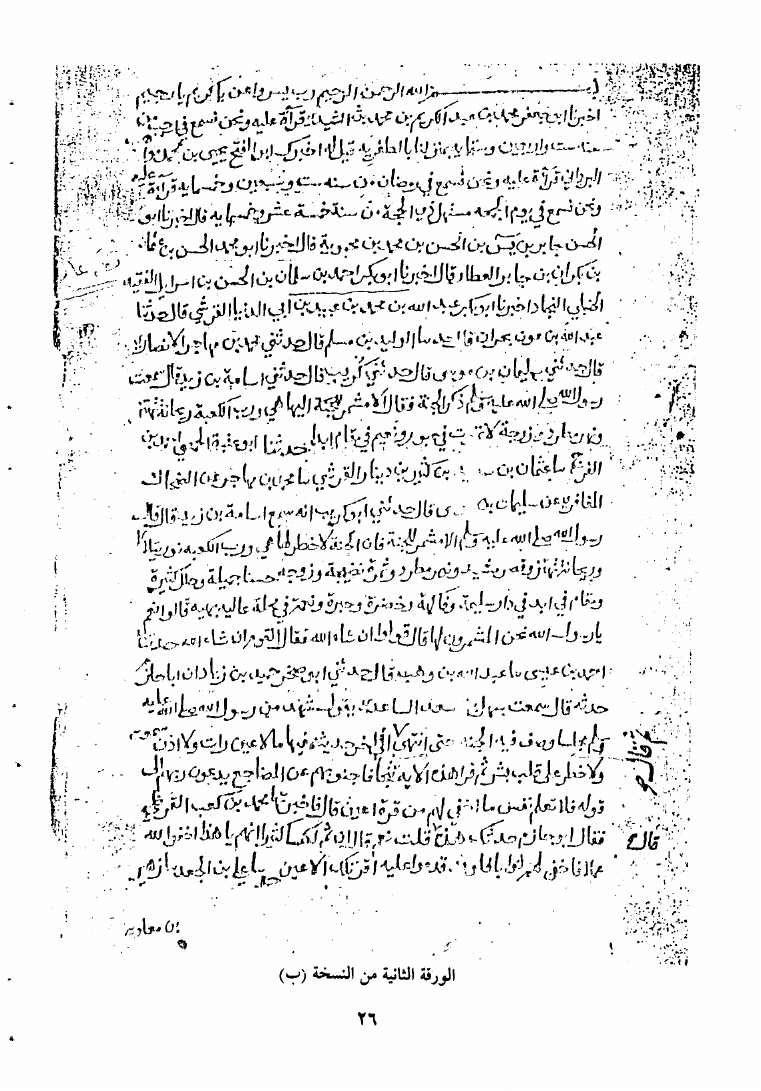 بسم الله الرحمن الرحيم رب يسر واعن يا كريم يا رحيم
اخبرنا ابو جعفر محمد بن عبد الكريم بن محمد بن السيدي قرأة عليه ونحن نسمع في
قيل له اخبرك ابو الفتح يحيى بن محمد
البرداني قرأة عليه ونحن نسمع في رمضان من سنه ست وخمسمايه قرأة عليه
ونحن نسمع في يوم الجمعه مستهل ذي الحجة من سنة خمسة عشر وخمسمايه قال اخبرنا ابو
الحسن جابر بن يس بن الحسن بن محمد بن محموية قال اخبرنا ابو محمد الحسن بن عثمان
بن بكران بن جابر العطار قال اخبرنا ابو بكر احمد بن سلمان بن الحسن بن اسرايل الفقيه
الحنبلي النجاد اخبرنا ابو بكر عبد الله بن محمد بن عبيد بن أبي الدنيا القرشي قال حدثنا
عبد الله بن عون قال حدثنا الوليد بن مسلم قال حدثني محمد بن مهاجر الانصاري
قال حدثني سليمان بن موسى قال حدثني كريب قال حدثني اسامة بن زيد قال سمعت
رسول الله صلى الله عليه وسلم ذكر الجنة وقال الا مشمر للجنة اليها هي ورب الكعبة ريحانة تهتز
وزوجة لا تموت في حبور ونعيم في مقام ابدا حدثنا ابو عتبة الحمصي احمد بن
الفرج سا عثمان بن سعيد بن كثير بن دينار القرشي سا محمد بن مهاجر عن الضحاك
المعافري عن سليمان بن موسى قال حدثني ابو كريب انه سمع اسامة بن زيد قال قال
رسول الله صلى الله عليه وسلم الا مشمر للجنة فان الجنة لا خطر لها هي ورب الكعبه نور يتلألأ
وريحانة تهتز وقصر مشيد ونهر مطرد وثمرة نضيجة وزوجه حسنا جميلة وحلل كثيرة
ومقام في ابد في دار سليمة وفاكهة وخضرة وحبرة ونعمة في محلة عاليه بهيه قالوا نعم
يا رسول الله نحن المشمرون لها قال قولوا ان شاء الله فقال القوم ان شاء الله حدثنا
احمد بن عيسى سا عبد الله بن وهب قال حدثني ابو صخر حميد بن زياد ان ابا حازم
حدثه قال سمعت سهل بن سعد الساعدي يقول شهدت من رسول الله صلى الله عليه
وسلم مجلسا وصف فيه الجنة حتى انتهى ثم قال في اخر حديثه فيها ما لا عين رات ولا اذن سمعت
ولا خطر على قلب بشر ثم قرا هذه الايه تتجافا جنوبهم عن المضاجع يدعون ربهم الى
قوله فلا تعلم نفس ما اخفي لهم من قرة اعين قال فاخبرت بها محمد بن كعب القرظي
فقال ابو حازم حدثك هذا قلت نعم قال ان ثم لكيسا كثيرا انهم يا هذا اخفوا لله
عملا فاخفى لهم ثوابا فلو قد قدموا عليه اقر تلك الاعين حدثنا علي بن الجعد نا زهير
بن معاوية
ثم قال
قال
الورقة الثانية من النسخة (ب)
٢٦